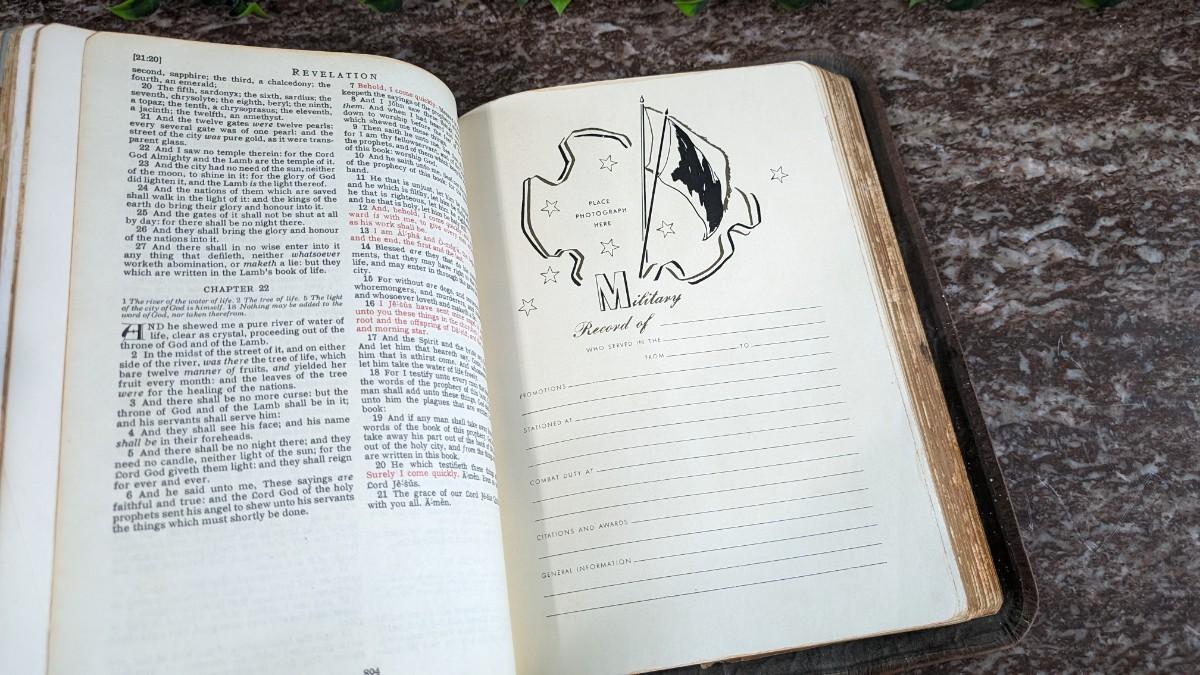 [21:20]
REVELATION
second, sapphire; the third, a chalcedony; the
fourth, an emerald;
20 The fifth, sardonyx; the sixth, sardius; the
seventh, chrysolyte; the eighth, beryl; the ninth,
a topaz; the tenth, a chrysoprasus; the eleventh,
a jacinth; the twelfth, an amethyst.
21 And the twelve gates were twelve pearls:
every several gate was of one pearl: and the
street of the city was pure gold, as it were trans-
parent glass.
22 And I saw no temple therein: for the Lord
God Almighty and the Lamb are the temple of it.
23 And the city had no need of the sun, neither
of the moon, to shine in it: for the glory of God
did lighten it, and the Lamb is the light thereof.
24 And the nations of them which are saved
shall walk in the light of it: and the kings of the
earth do bring their glory and honour into it.
25 And the gates of it shall not be shut at all
by day: for there shall be no night there.
26 And they shall bring the glory and honour
of the nations into it.
27 And there shall in no wise enter into it
any thing that defileth, neither whatsoever
worketh abomination, or maketh a lie: but they
which are written in the Lamb's book of life.
CHAPTER 22
1 The river of the water of life. 2 The tree of life. 5 The light
of the city of God is himself. 18 Nothing may be added to the
word of God, nor taken therefrom.
AND he shewed me a pure river of water of
life, clear as crystal, proceeding out of the
throne of God and of the Lamb.
2 In the midst of the street of it, and on either
side of the river, was there the tree of life, which
bare twelve manner of fruits, and yielded her
fruit every month: and the leaves of the tree
were for the healing of the nations.
3 And there shall be no more curse: but the
throne of God and of the Lamb shall be in it;
and his servants shall serve him:
4 And they shall see his face; and his name
shall be in their foreheads.
5 And there shall be no night there; and they
need no candle, neither light of the sun; for the
Lord God giveth them light: and they shall reign
for ever and ever.
6 And he said unto me, These sayings are
faithful and true: and the Lord God of the holy
prophets sent his angel to shew unto his servants
the things which must shortly be done.
7 Behold, I come quickly.
keepeth the sayings of the
8 And I John saw these
them. And when I had
down to worship before the
which shewed me these things.
9 Then saith he unto me,
for I am thy fellowservant, and
the prophets, and of them which
of this book: worship God.
10 And he saith unto me, Seal
of the prophecy of this book: for
hand.
11 He that is unjust, let him
and he which is filthy, let him
he that is righteous, let him be
and he that is holy, let him be
12 And, behold, I come quickly;
ward is with me, to give every
as his work shall be.
13 I am Alpha and Omega,
and the end, the first and the last.
14 Blessed are they that do his
ments, that they may have right
life, and may enter in through the
city.
15 For without are dogs, and
whoremongers, and murderers, and
and whosoever loveth and maketh a
16 I Jē´sŭs have sent mine
unto you these things in the churches.
root and the offspring of Dā´vid, and
and morning star.
17 And the Spirit and the bride say,
And let him that heareth say, Come.
him that is athirst come. And whosoever
let him take the water of life freely.
18 For I testify unto every man
the words of the prophecy of this book,
man shall add unto these things, God
unto him the plagues that are written
book:
19 And if any man shall take away
words of the book of this prophecy, God
take away his part out of the book of
out of the holy city, and from the things
are written in this book.
20 He which testifieth these things
Surely I come quickly. Ā´mĕn. Even so
Lord Jē´sŭs.
21 The grace of our Lord Jē´sŭs
with you all. Ā´mĕn.
894
PLACE
PHOTOGRAPH
HERE
Military
Record of
WHO SERVED IN THE
FROM TO
PROMOTIONS
STATIONED AT
COMBAT DUTY AT
CITATIONS AND AWARDS
GENERAL INFORMATION